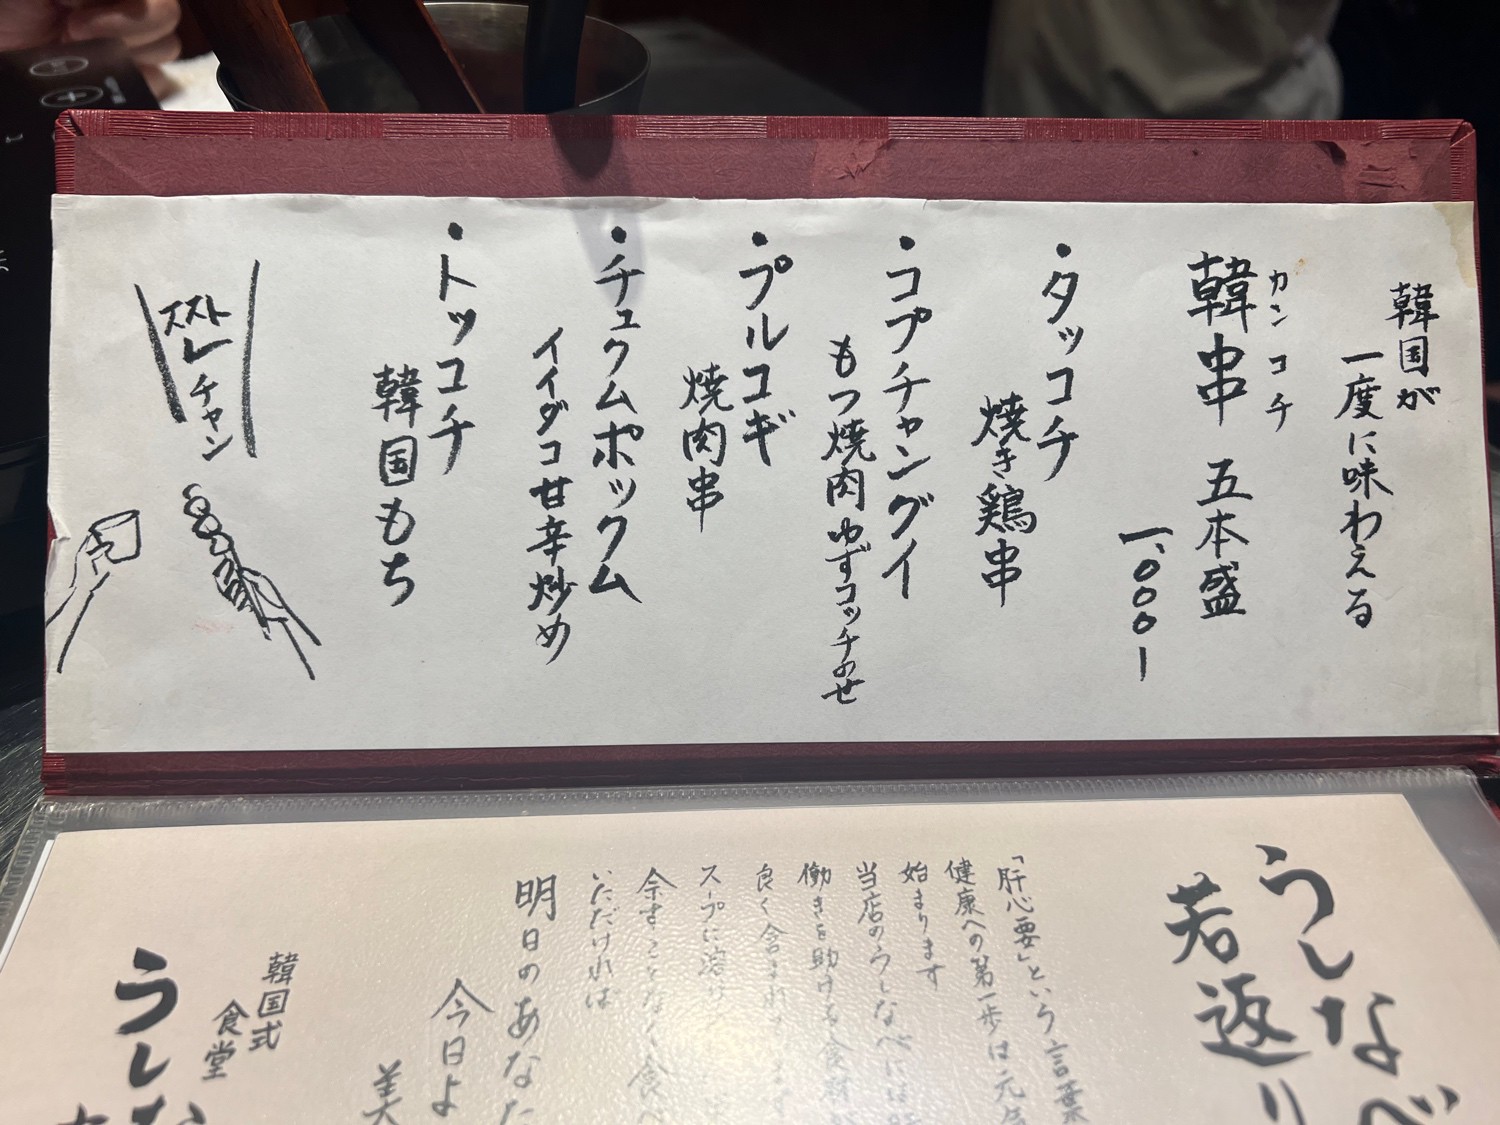 韓国が
一度に味わえる
カンコチ
韓串 五本盛
一、〇〇〇ー
・タッコチ
焼き鶏串
・コプチャングイ
もつ焼肉ゆずコッチのせ
・プルコギ
焼肉串
・チュクムポックム
イイダコ甘辛炒め
・トッコチ
韓国もち
ストレスチャン
うしなべ
若返り
「肝心要」という言葉
健康への第一歩は元気
始まります
当店のうしなべには
働きを助ける食材
良く含まれ
スープに溶け
余すことなく食べ
いただければ
明日のあなた
今日よ
美
韓国式
食堂
うしな